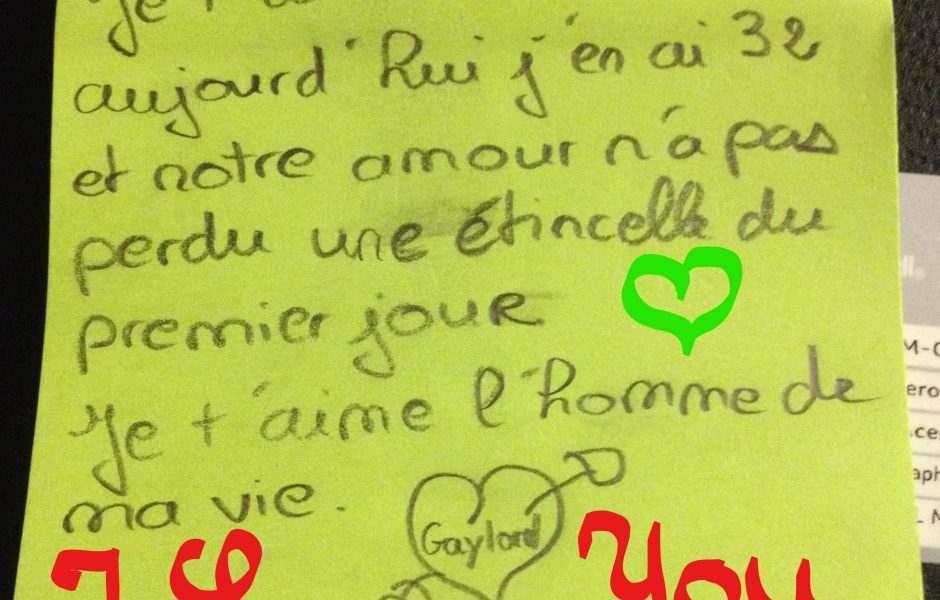 Je t'a
aujourd'hui j'en ai 32
et notre amour n'a pas
perdu une étincelle du
premier jour
Je t'aime l'homme de
ma vie.
Gaylord
You